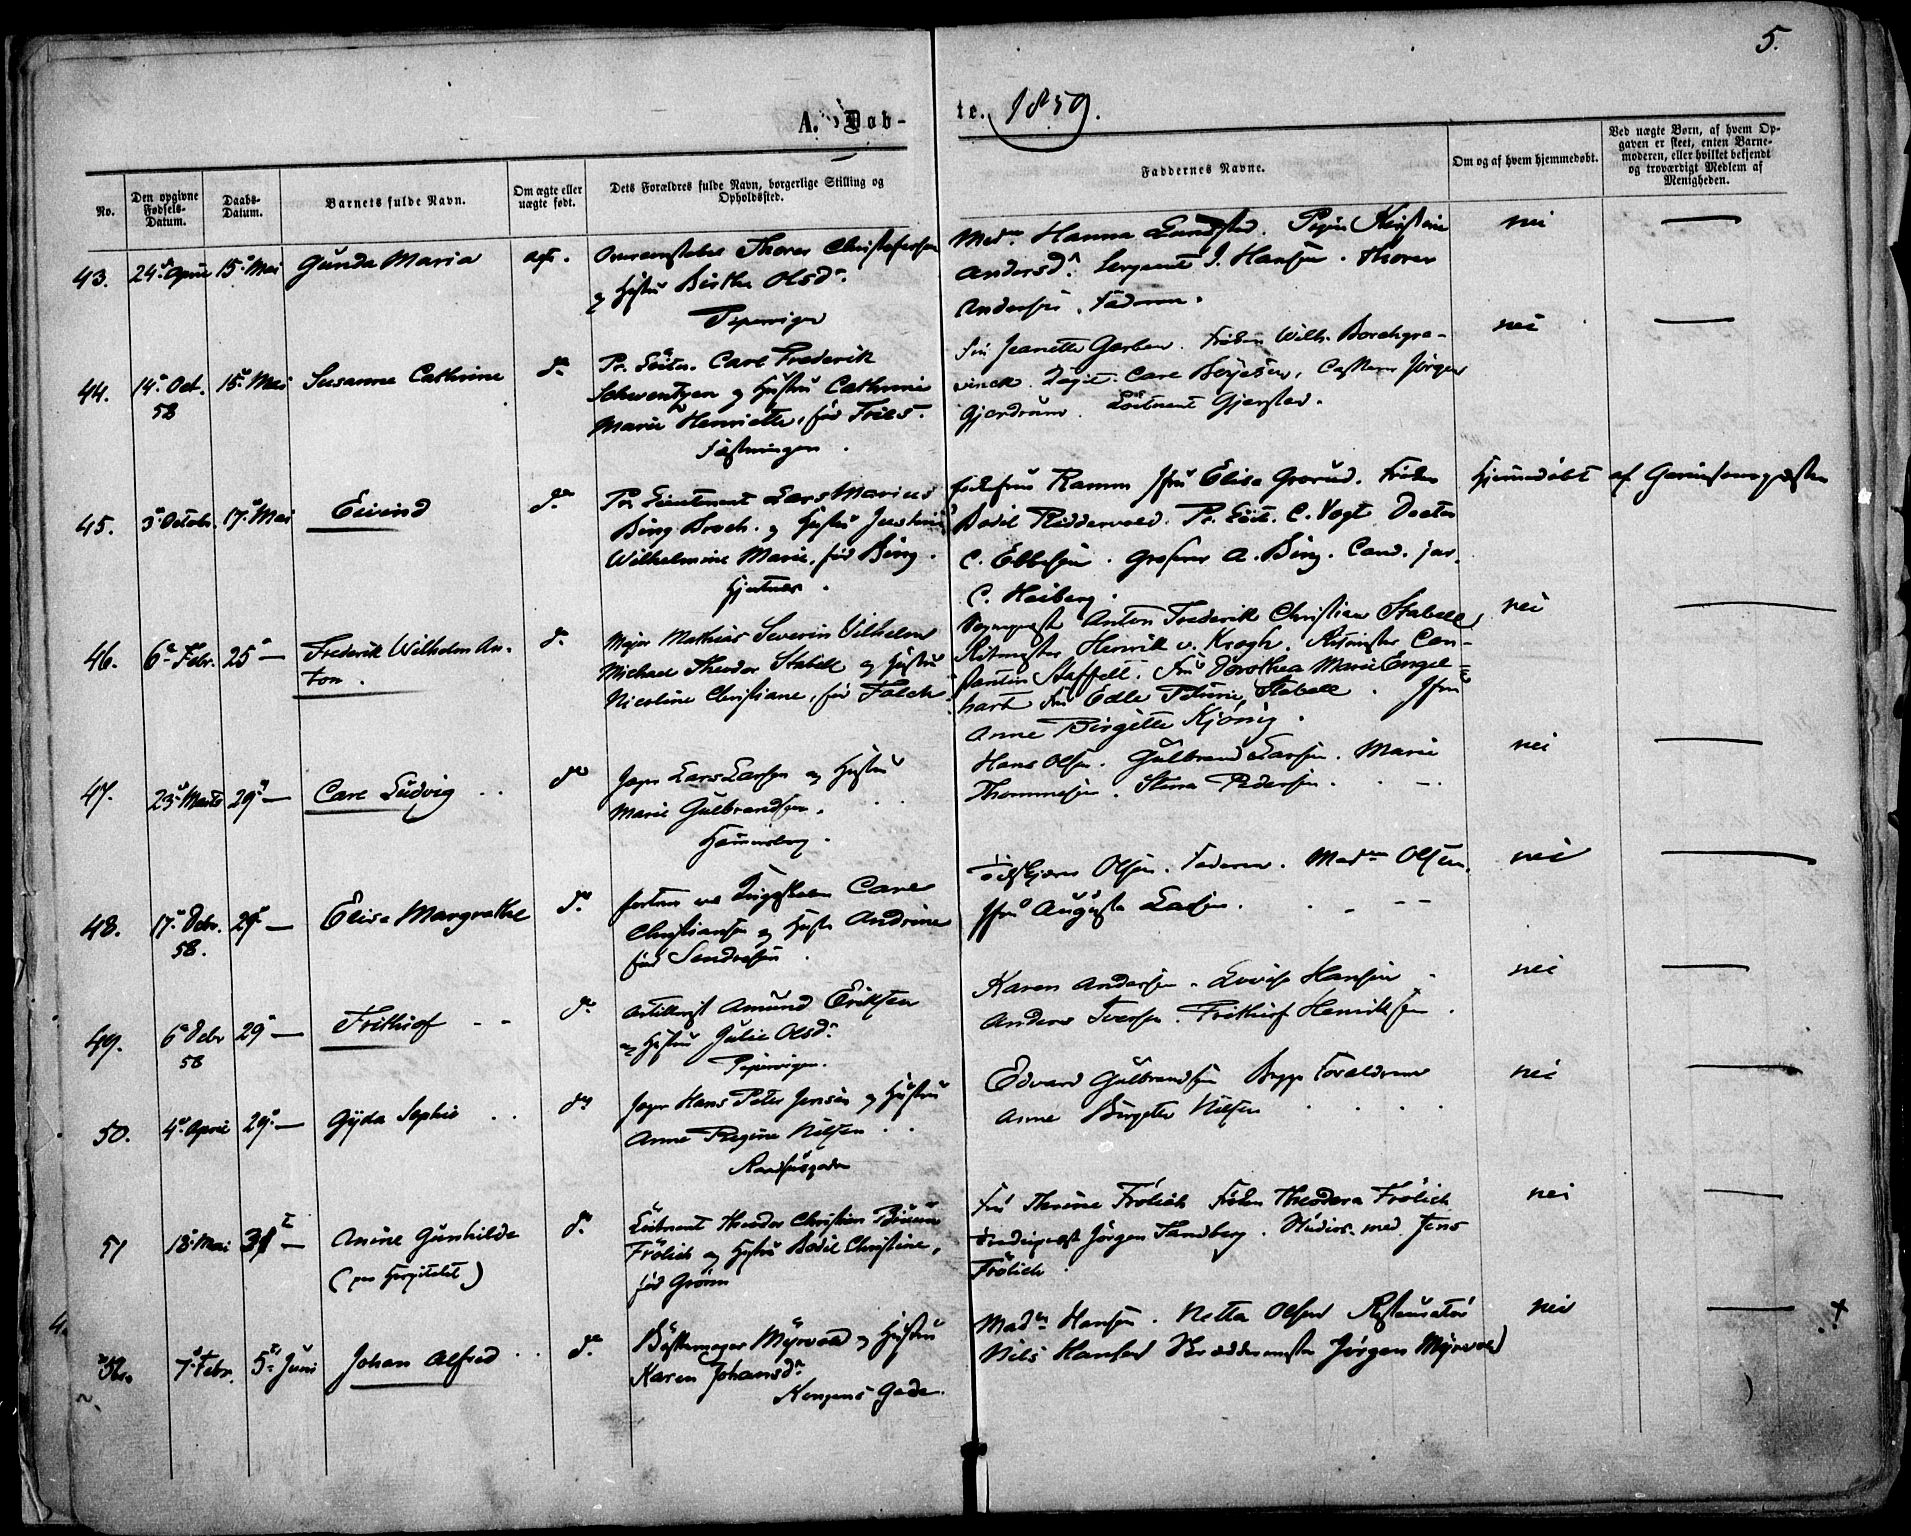 5.
A. Døb-
te. 1859.
No.
Den opgivne Fødsels-Datum.
Daabs-Datum.
Barnets fulde Navn.
Om ægte eller uægte født.
Dets Forældres fulde Navn, borgerlige Stilling og Opholdssted.
Faddernes Navne.
Om og af hvem hjemmedøbt.
Ved uægte Børn, af hvem Op-
gaven er skeet, enten Barne-
moderen, eller hvilket bekjendt
og troværdigt Medlem af
Menigheden.
43. 24 April 15 Mai Gunda Maria ægt. Thorer Christofersen
og Hustru Birthe Olsdr.
Pipervigen
Madm. Hanna Lundsted. Pigen Kirstine
Andersdr. Sergeant J. Hansen. Thorer
Andersen. Faderen.
nei
44. 14 Oct. 58 15 Mai Susanne Cathrine do. Pr. Löit. Carl Frederik
Schwentzen og Hustru Cathrine
Marie Henriette, föd Fries.
Fæstningen.
Fru Jeanette Gerben. Fröken Wilh. Borchgre-
vinck. Carl Börjesen, Jörgen
Gjerdrum. Löitnant Gjersted.
nei
45. 3 Octobr. 17 Mai Eivind do. Pr. Lieutenant Lars Marius
Bing Broch. og Hustru Justine
Wilhelmine Marie, föd Bing.
Ramm Jfru Elise Grorud. Fröken
Bodil Riddervold. Pr. Löit. C. Vogt Doctor
C. Ebbesen. Grosserer A. Bing. Cand. jur.
C. Heiberg.
Hjemmedöbt af Garnisonspræsten
46. 6 Febr. 25 — Frederik Wilhelm An-
ton.
do. Major Mathias Severin Vilhelm
Michael Theodor Stabell og Hustru
Nicoline Christiane, föd Falch.
Sognepræst Anton Frederik Christian Stabell
Ritmester Henrik v. Krogh. Ritmester Con-
stantin Staffelt. Fru Dorothea Marie Engel-
hart Fru Edle Petrine Stabell. Jfru
Anne Birgitte Kjönig.
nei
47. 23 Marts 29 — Carl Ludvig do Jæger Lars Larsen og Hustru
Marie Gulbrandsen.
Hammersborg.
Hans Olsen. Gulbrand Larsen. Marie
Thommesen. Pedersen.
nei
48. 17 Debr. 58. 29 — Elise Margrethe do. Carl
Christiansen og Hustru Andrine
föd
Olsen. Faderen. Madm Olsen.
Jfru Augusta Larsen.
nei
49. 6 Debr 58 29 — Frithiof do. Artillerist Amund Eriksen
og Hustru Julie Olsdr.
Pipervigen.
Karen Andersen. Lovise Hansen
Anders Iversen. Frithiof Henriksen.
nei
50. 4 April 29 — Gyda Sophie do Jæger Hans Peter Jensen og Hustru
Anne Regine Nilsen
Raadhusgaden
Edvard Gulbrandsen Begge Forældrene
Anne Birgitte Nilsen
nei
51 18 Mai 31 — Anine Gunhilde
(paa Hospitalet)
do. Löitnant Theodor Christian Bruun
Frölich og Hustru Bodil Christine,
föd Grönn
Fru Therine Frölich Fröken Theodora Frölich
Jörgen Sandberg. Studios. med. Jens
Frölich.
nei
52. 7 Febr. 5 Juni Johan Alfred do. Bössemager Myrvold og Hustru
Karen Johansdr
Kongens Gade.
Madm Hansen. Netta Olsen Restauratör
Nils Hansen Skræddermester Jörgen Myrvold
nei